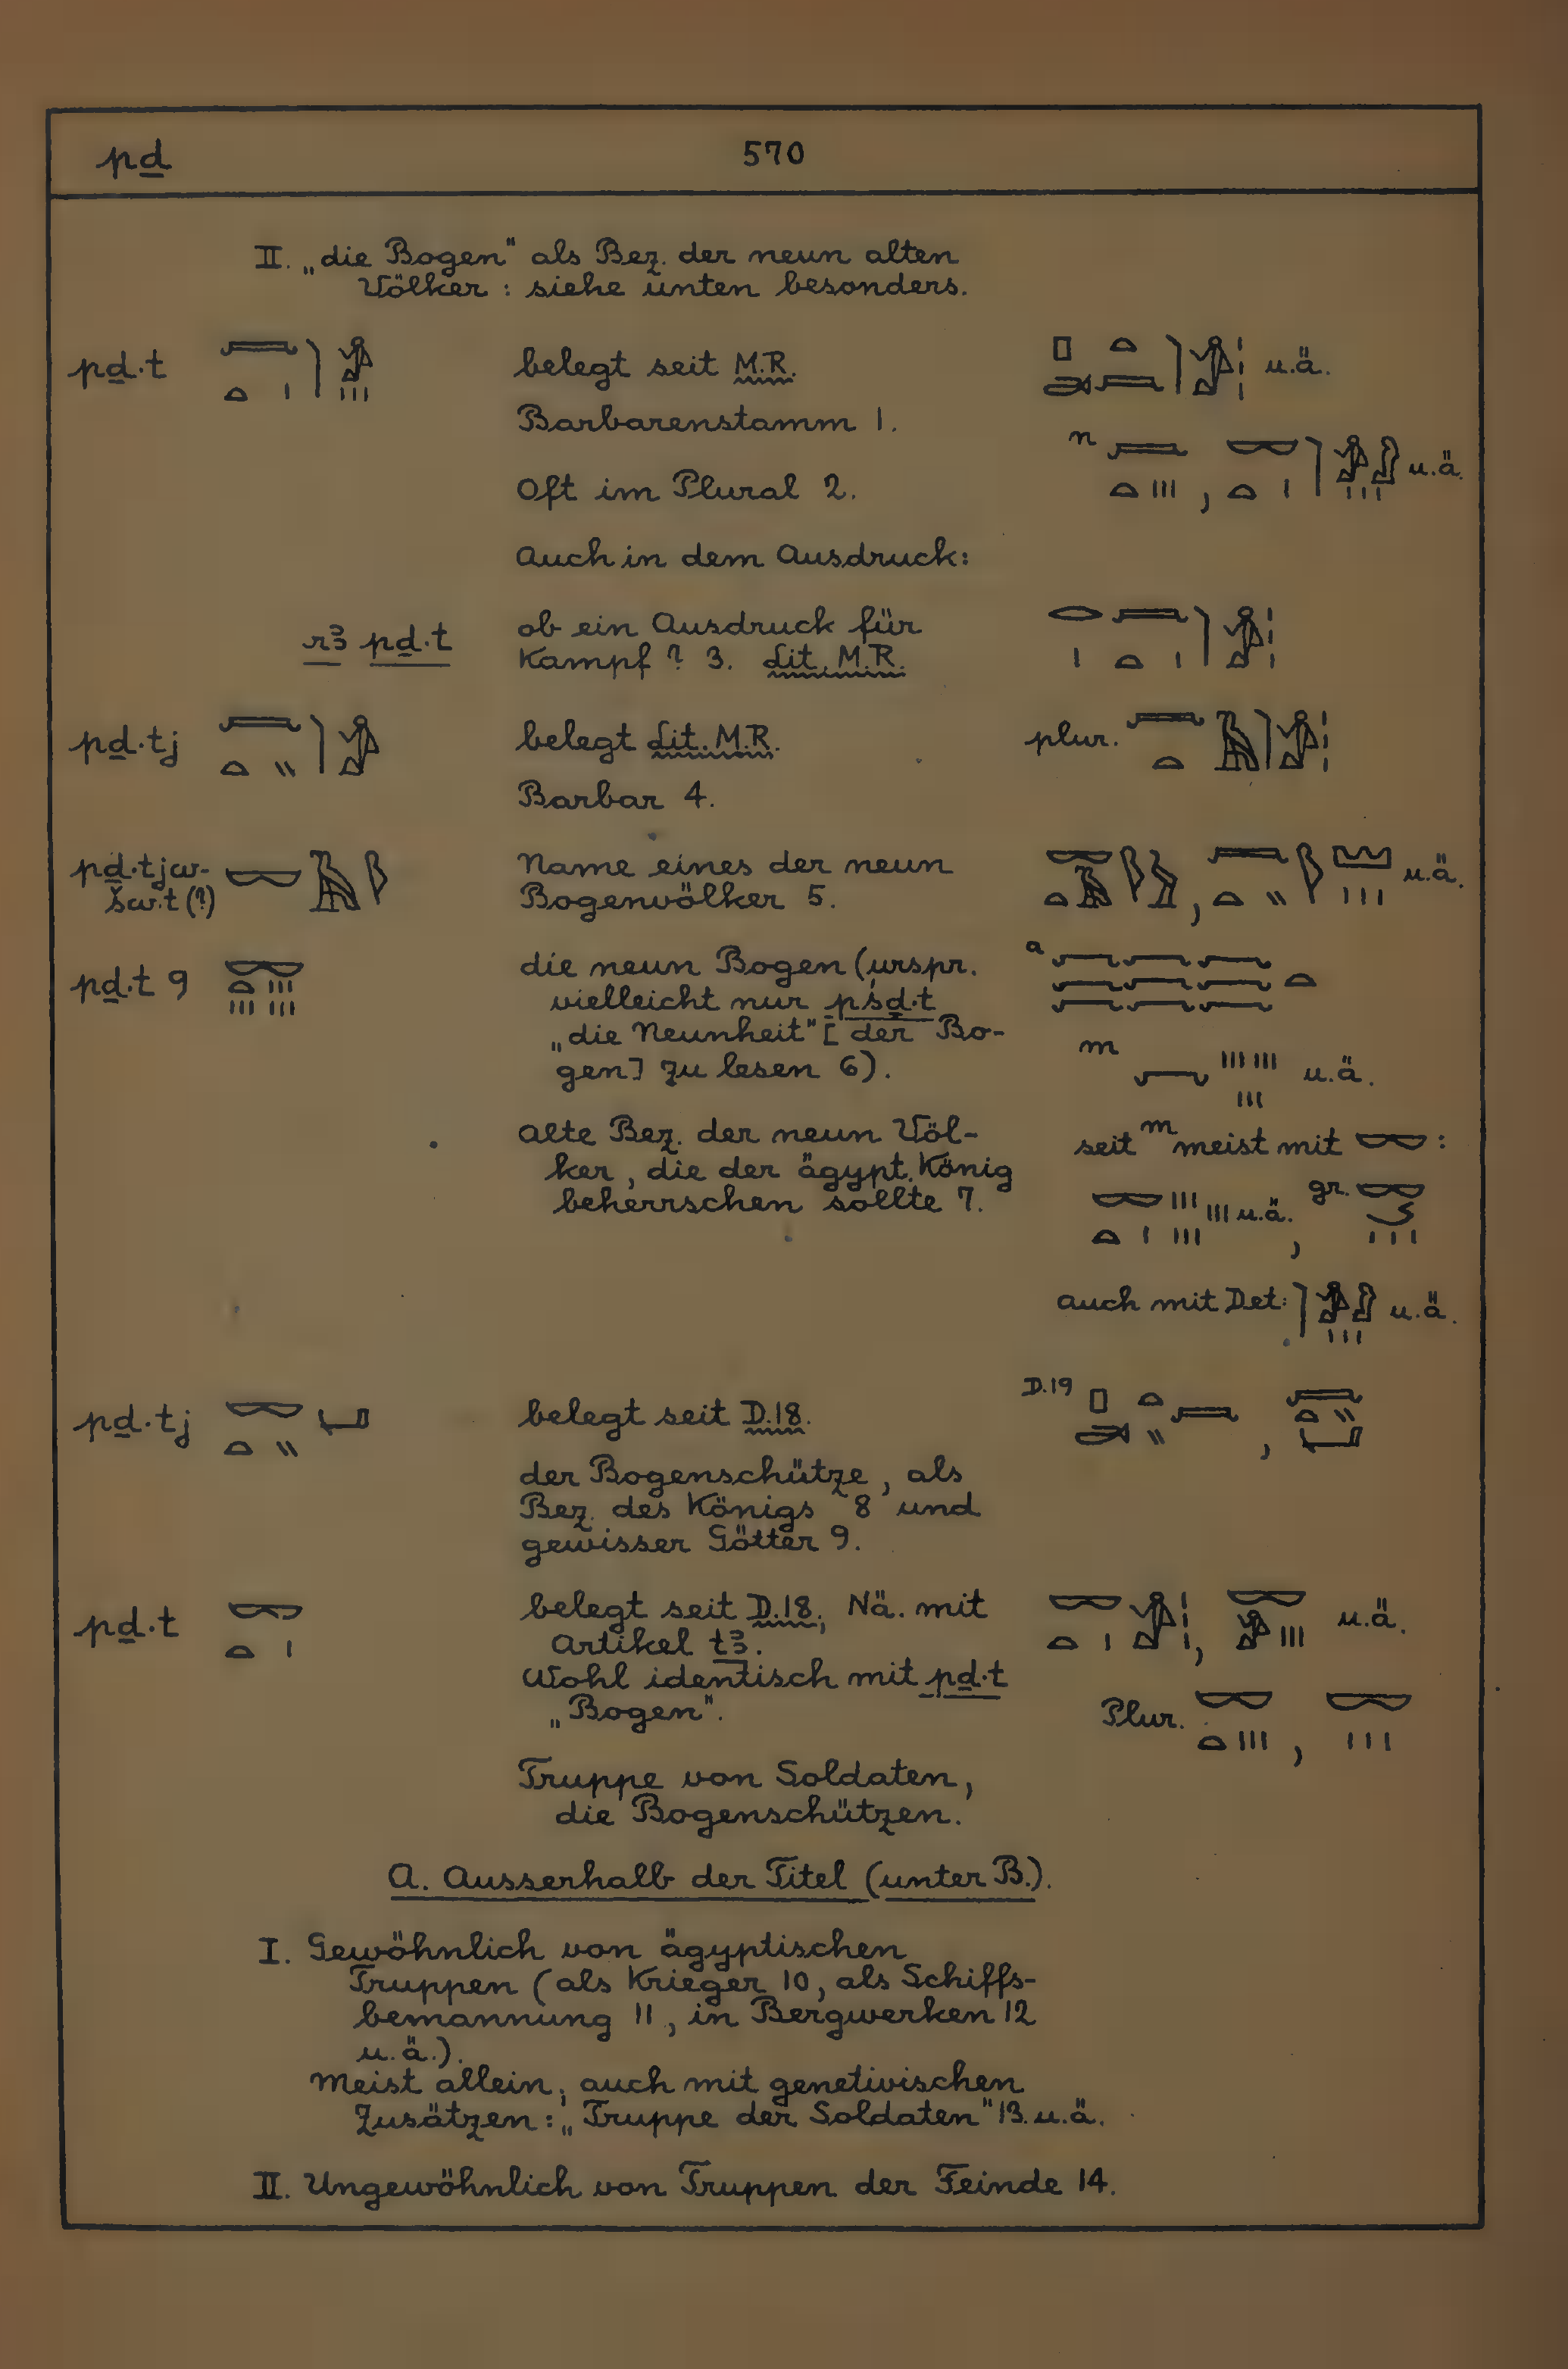 pḏ 570
II. „die Bogen" als Bez. der neun alten
Völker : siehe unten besonders.
pḏ.t belegt seit M.R. u.ä.
Barbarenstamm 1.
n , u.ä.
Oft im Plural 2.
Auch in dem Ausdruck:
r3 pḏ.t ob ein Ausdruck für
Kampf? 3. Lit. M.R.
pḏ.tj belegt Lit. M.R. plur.
Barbar 4.
pḏ.tjw- Name eines der neun
šw.t (?) Bogenvölker 5. , u.ä.
pḏ.t 9 die neun Bogen (urspr. a
vielleicht nur pśḏ.t
„die Neunheit" [der Bo-
gen] zu lesen 6). m u.ä.
Alte Bez. der neun Völ- seit m meist mit :
ker, die der ägypt. König
beherrschen sollte 7. u.ä. , gr.
auch mit Det: u.ä.
pḏ.tj belegt seit D.18. D.19 ,
der Bogenschütze, als
Bez. des Königs 8 und
gewisser Götter 9.
pḏ.t belegt seit D.18; Nä. mit , u.ä.
Artikel t3.
Wohl identisch mit pḏ.t
„Bogen". Plur. ,
Truppe von Soldaten,
die Bogenschützen.
A. Ausserhalb der Titel (unter B.).
I. Gewöhnlich von ägyptischen
Truppen (als Krieger 10, als Schiffs-
bemannung 11, in Bergwerken 12
u.ä.).
Meist allein, auch mit genetivischen
Zusätzen: „Truppe der Soldaten" 13. u.ä.
II. Ungewöhnlich von Truppen der Feinde 14.